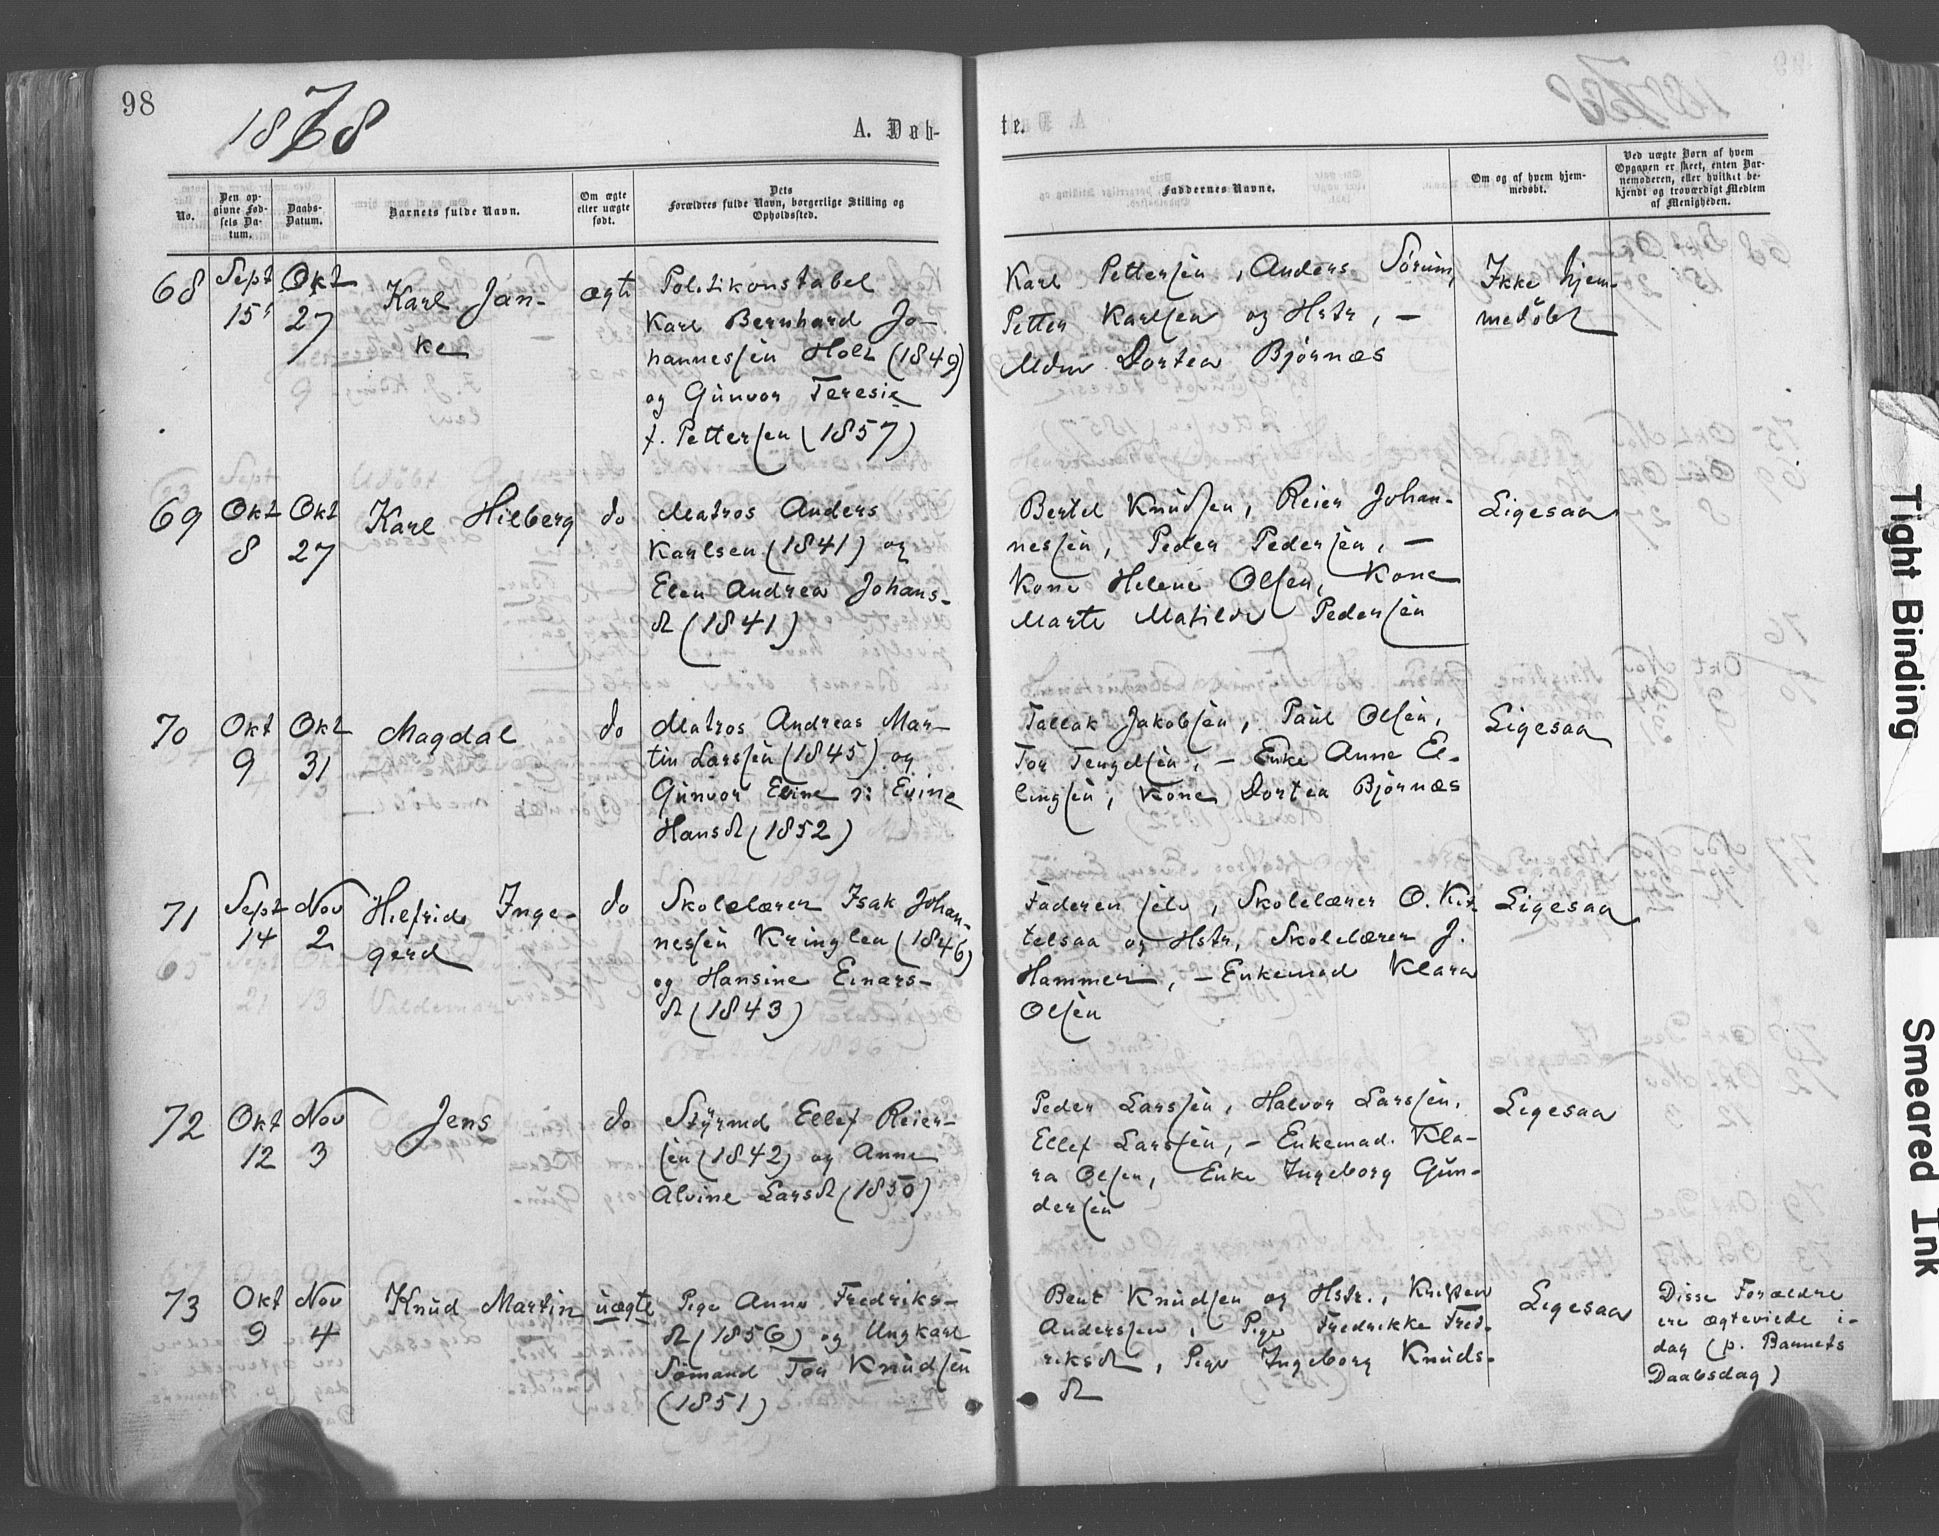 98
1878
A. Døb-
te.
No.
Den op-
givne Fød-
sels Da-
tum.
Daabs-
Datum.
Barnets fulde Navn.
Om ægte
eller uægte
født.
Dets
Forældres fulde Navn, borgerlige Stilling og
Opholdssted.
Faddernes Navne.
Om og af hvem hjem-
medøbt.
Ved uægte Børn af hvem
Opgaven er skeet, enten Bar-
nemoderen, eller hvilket be-
kjendt og troværdigt Medlem
af Menigheden.
68
Sept
15
Okt
27
Karl Jan-
ke
ægte
Politikonstabel
Karl Bernhard Jo-
hannessen Holt (1849)
og Gunvor Teresie
f. Pettersen (1857)
Karl Pettersen, Anders Sørum,
Petter Karlsen og Hstr, –
Mdm Dortea Bjørnæs
Ikke hjem-
medøbt
69
Okt
8
Okt
27
Karl Hilberg
do
Matros Anders
Karlsen (1841) og
Elen Andrea Johans-
dt (1841)
Bertel Knudsen, Reier Johan-
nessen, Peder Pedersen, –
Kone Helene Olsen, Kone
Marte Matilde Pedersen
Ligesaa
70
Okt
9
Okt
31
Magdal
do
Matros Andreas Mar-
tin Larssen (1845) og
Gunvor Eline ɔ: Evine
Hansdt (1852)
Tallak Jakobsen, Paul Olsen,
Tor Tengelsen, – Enke Anne El-
lingsen, Kone Dortea Bjørnæs
Ligesaa
71
Sept
14
Nov
2
Hilfrid Inge-
gerd
do
Skolelærer Isak Johan-
nessen Kringlen (1846)
og Hansine Einars-
dt (1843)
Faderen selv, Skolelærer O. Kit-
telsaa og Hstr, Skolelærer J.
Hammer, – Enkemad Klara
Olsen
Ligesaa
72
Okt
12
Nov
3
Jens
do
Styrmd Ellef Reier-
sen (1842) og Anne
Alvine Larsdt (1850)
Peder Larssen, Halvor Larssen,
Ellef Larssen, – Enkemad. Kla-
ra Olsen, Enke Ingeborg Gun-
dersen
Ligesaa
73
Okt
9
Nov
4
Knud Martin
uægte
Pige Anne Fredriks-
dt (1856) og Ungkarl
Sømand Tor Knudsen
(1851)
Bent Knudsen og Hstr., Knudsen
Anderssen, Pige Fredrikke Fred-
riksdt, Pige Ingeborg Knuds-
dt
Ligesaa
Disse Forældre
ere ægteviede i-
dag (p. Barnets
Daabsdag)
Tight Binding
Smeared Ink